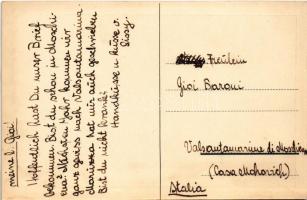 meine l. Gioi
Hoffentlich hast Du unser Brief
bekommen. Bist du schon in Moschi-
ena? Nächstes Jahr kommen wir
ganz gewiss nach Valsantamarina.
Marizza hat mir auch geschrieben
Bist du nicht krank?
Handküsse u. Küsse v.
Sissy
Fräulein
Gioi Baroni
Valsantamarina di Moschien
(Casa Mahovich)
Italia